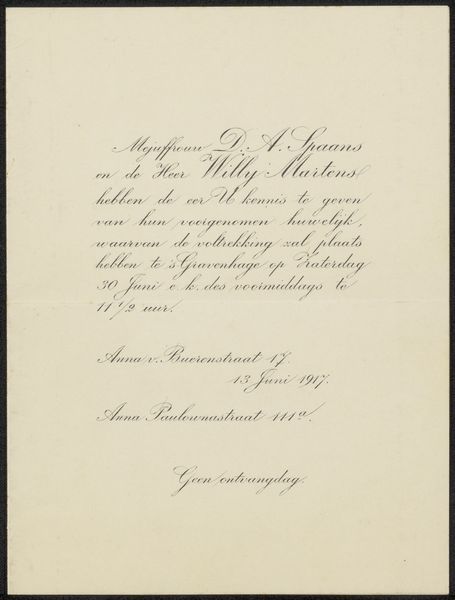 Mejuffrouw D. A. Spaans
en de Heer Willy Martens
hebben de eer U kennis te geven
van hun voorgenomen huwelijk,
waarvan de voltrekking zal plaats
hebben te 's Gravenhage op Zaterdag
30 Juni e. k. des voormiddags te
11 1/2 uur.
Anna v. Buerenstraat 17.
13 Juni 1917.
Anna Paulownastraat 111a.
Geen ontvangdag.